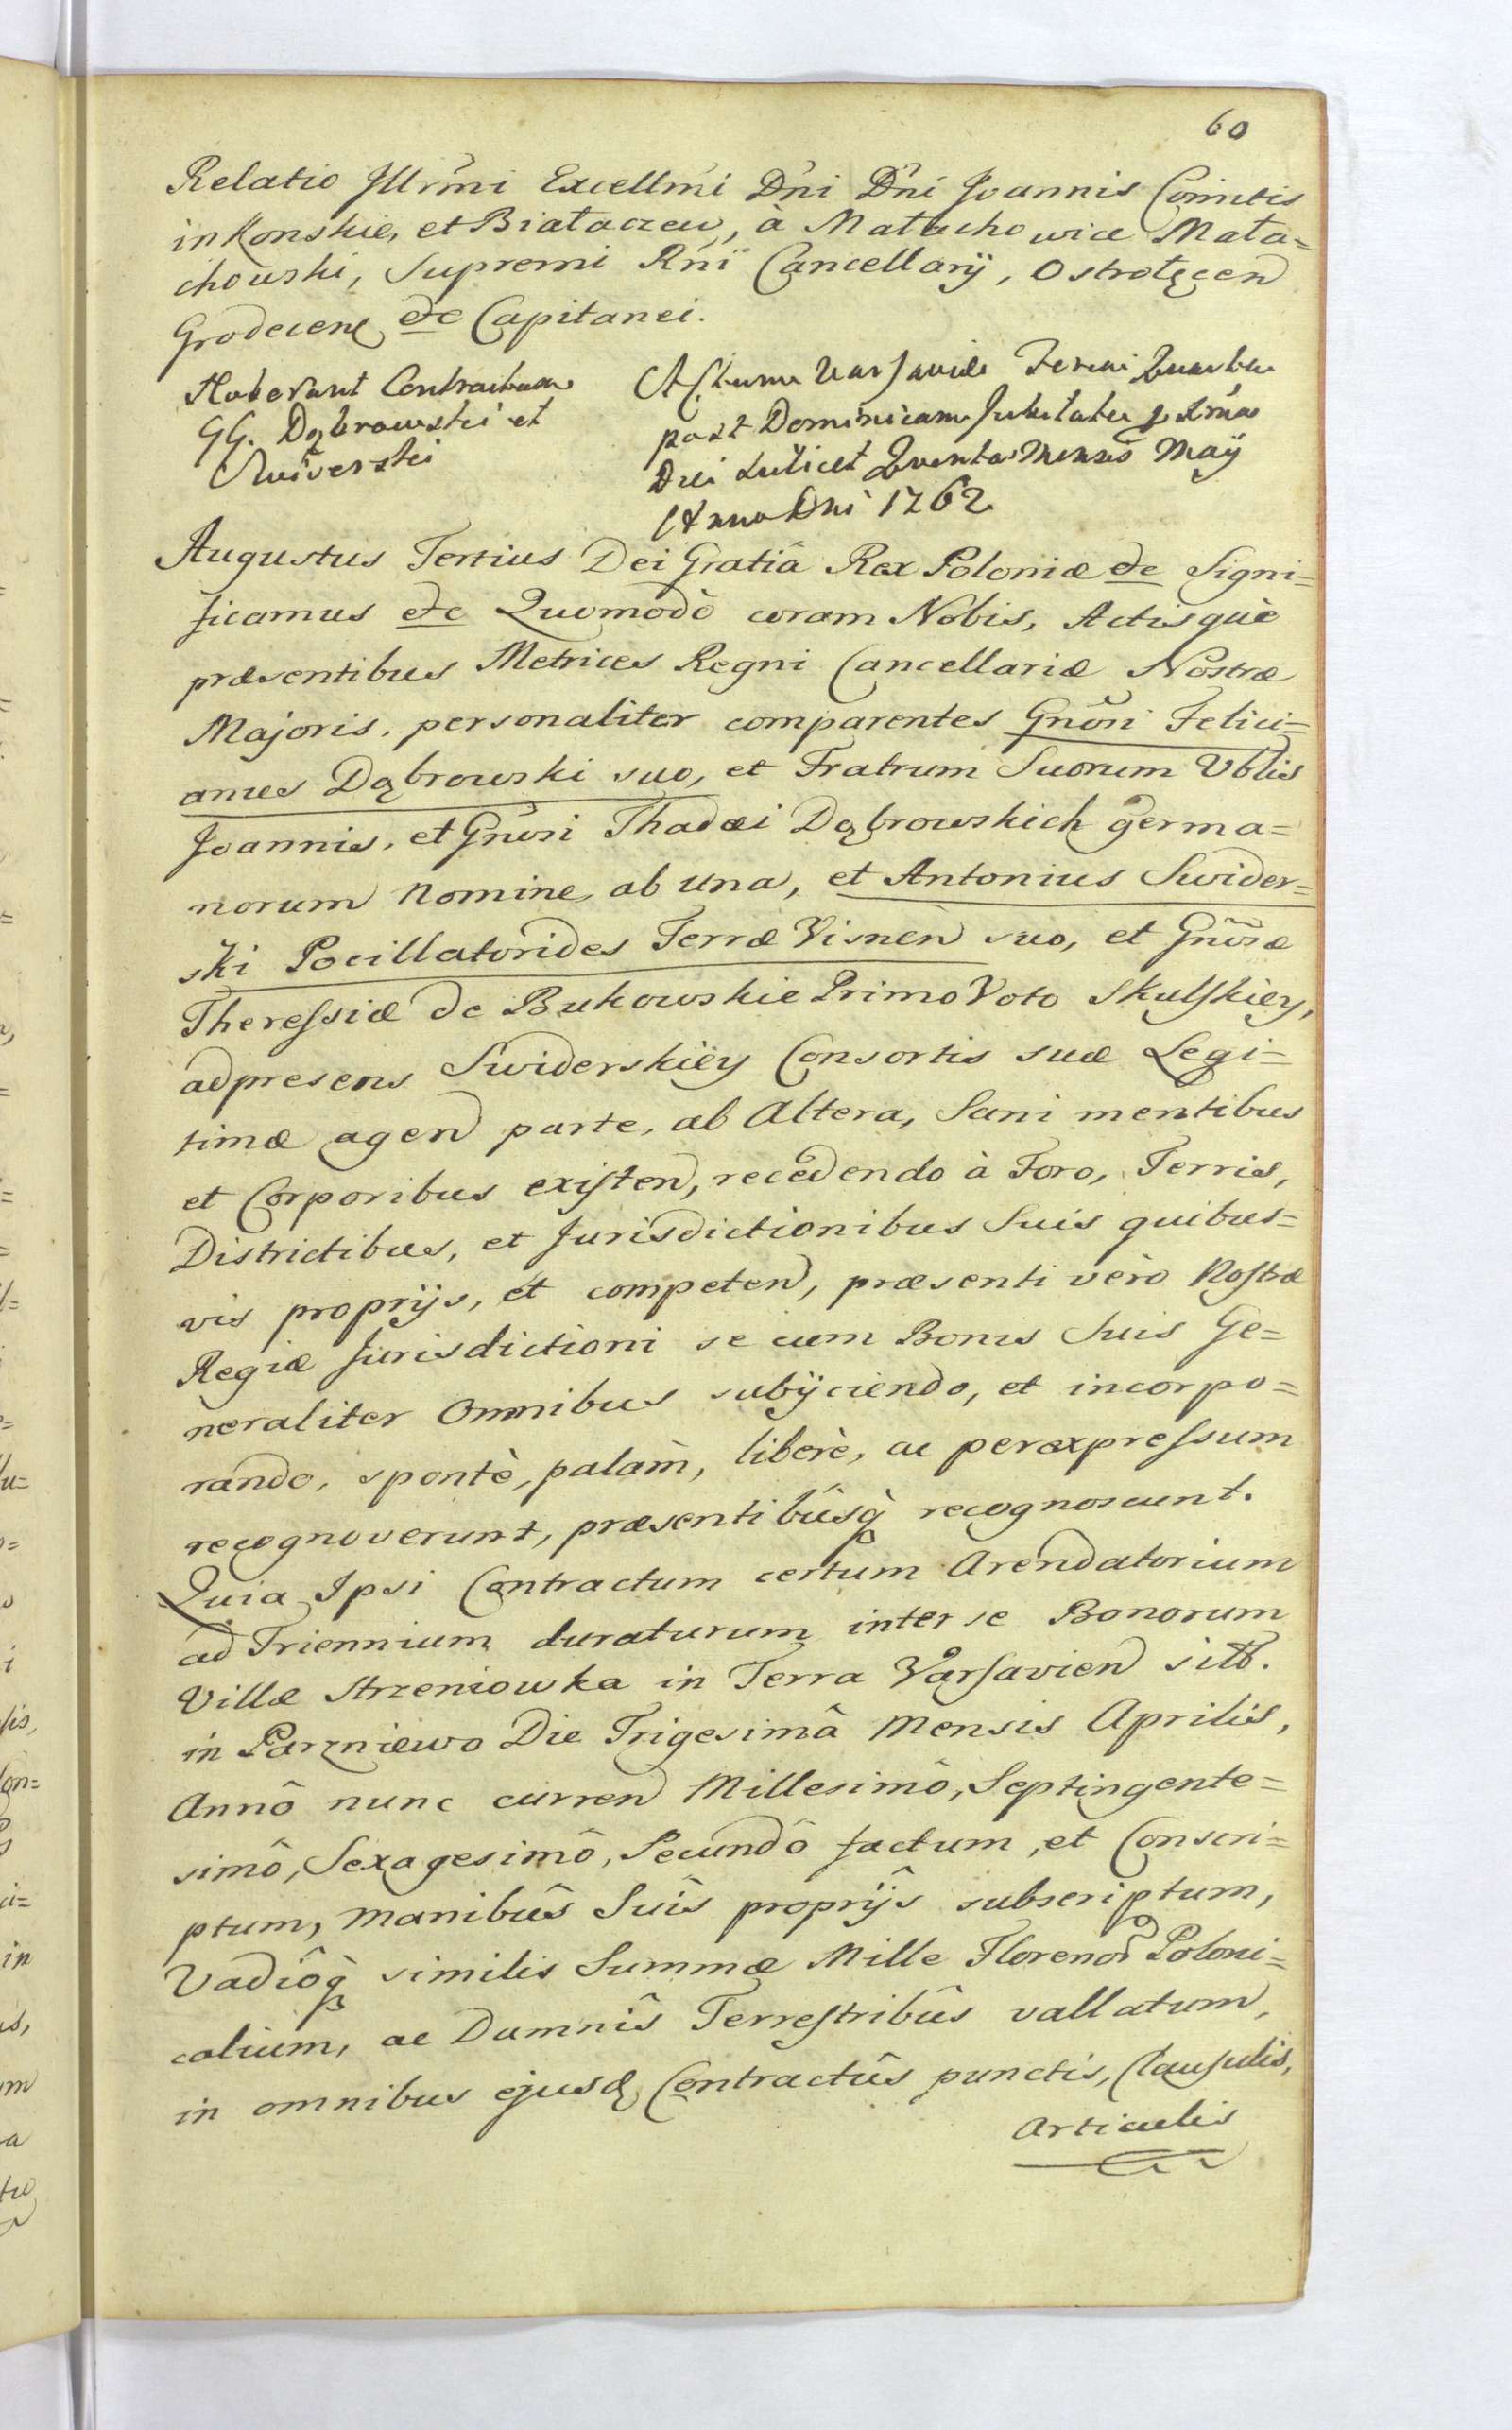 60
Relatio Jllrmi Excellmi Dni Dni Joannis Comitis
in Konskie, et Białaczew, à Małachowice Mała=
chowski, Supremi Rni Cancellarÿ, Ostrołęcen
Grodecenq etc Capitanei.
Roborant Contractum
GG. Dąbrowski et
Swiderski
Actum Varsaviæ Feria Quarta
post Dominicam Jubilate pxma
Die scilicet Quinta Mensis Maÿ
Anno Dni 1762
Augustus Tertius Dei Gratiâ Rex Poloniæ etc Signi=
ficamus etc Quomodò coram Nobis, Actisquè
præsentibus Metrices Regni Cancellariæ Nostræ
Majoris, personaliter comparentes Gnõsi Felici=
anus Dąbrowski suo, et Fratrum Suorum Vblis
Joannis, et Gnosi Thadæi Dąbrowskich germa=
norum Nomine, ab una, et Antonius Swider=
ski Pocillatorides Terræ Visnen suo, et Gnõsæ
Theressiæ de Bukowskie Primo Voto Skulskiey,
adpresens Swiderskiëy Consortis suæ Legi=
timæ agen parte, ab Altera, Sani mentibus
et Corporibus existen, recedendo à Foro, Terris,
Districtibus, et Jurisdictionibus Suis quibus=
vis proprÿs, et competen, præsenti vèro Nostræ
Regiæ Jurisdictioni se cum Bonis Suis Ge=
neraliter Omnibus subÿciendo, et incorpo=
rando, spontè, palàm, liberè, ac per expressum
recognoverunt, præsentibûsq̀ recognoscunt.
Quia Ipsi Contractum certum Arendatorium
ad Triennium duraturum inter se Bonorum
Villæ Strzeniowka in Terra Varsavien sitt.
in Parzniewo Die Trigesimâ Mensis Aprilis,
Annô nunc curren Millesimô, Septingente=
simô, Sexagesimô, Secundô factum, et Conscri=
ptum, Manibûs Suîs proprÿs subscriptum,
Vadiôq̀ similis Summæ Mille Florenor Poloni=
calium, ac Damnîs Terrestribûs vallatum,
in omnibus ejusd Contractûs punctis, Clausulis,
Articulis